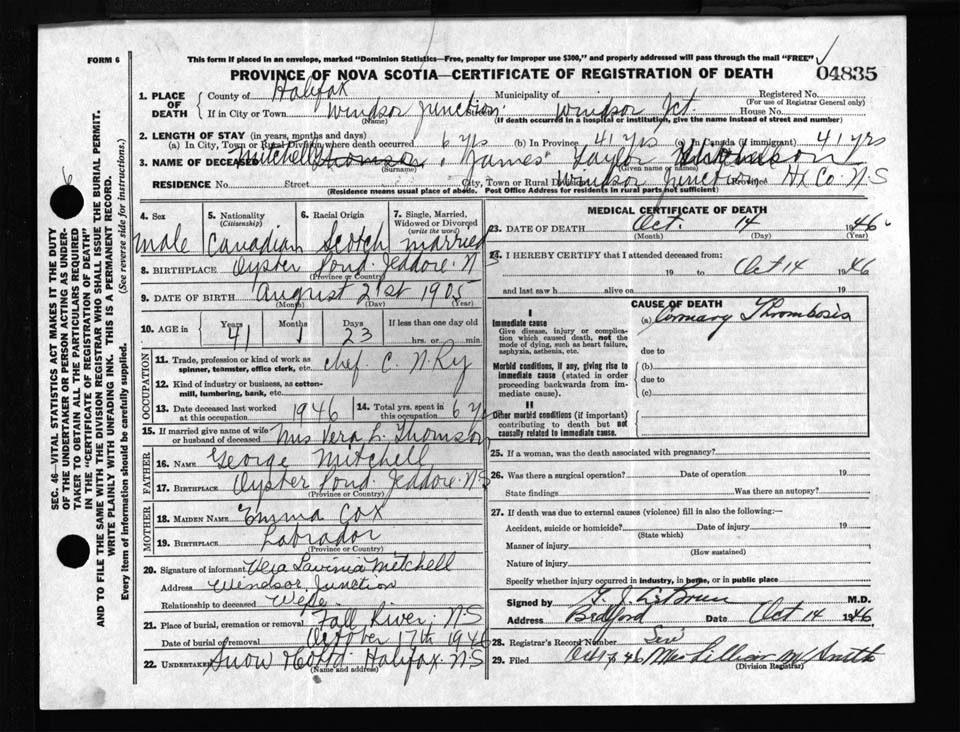 FORM 6
This form if placed in an envelope, marked "Dominion Statistics—Free, penalty for improper use $300," and properly addressed will pass through the mail "FREE"
PROVINCE OF NOVA SCOTIA—CERTIFICATE OF REGISTRATION OF DEATH
04835
1. PLACE OF DEATH
County of Halifax Municipality of Registered No.
(For use of Registrar General only)
If in City or Town Windsor Junction Street Windsor Jct. House No.
(Name) (If death occurred in a hospital or institution, give the name instead of street and number)
2. LENGTH OF STAY (in years, months and days)
(a) In City, Town or Rural Division where death occurred 6 yrs (b) In Province 41 yrs (c) In Canada (if immigrant) 41 yrs
3. NAME OF DECEASED Mitchell Thomson, James Taylor
(Surname) (Given name or names)
RESIDENCE No. Street City, Town or Rural Division Windsor Junction Province Hx Co. N.S
(Residence means usual place of abode. Post Office Address for residents in rural parts not sufficient)
4. Sex
male
5. Nationality
(Citizenship)
Canadian
6. Racial Origin
Scotch
7. Single, Married, Widowed or Divorced
(write the word)
married
8. BIRTHPLACE Oyster Pond. Jeddore. N S
(Province or Country)
9. DATE OF BIRTH August 21st 1905
(Month) (Day) (Year)
10. AGE in
Years 41 Months 1 Days 23 If less than one day old
hrs. or min.
OCCUPATION
11. Trade, profession or kind of work as spinner, teamster, office clerk, etc. Chef. C. N. Ry
12. Kind of industry or business, as cotton-mill, lumbering, bank, etc.
13. Date deceased last worked at this occupation 1946
14. Total yrs. spent in this occupation 6 yrs
15. If married give name of wife or husband of deceased Mrs Vera L. Thomson
FATHER
16. NAME George Mitchell
17. BIRTHPLACE Oyster Pond. Jeddore. N.S
(Province or Country)
MOTHER
18. MAIDEN NAME Emma Cox
19. BIRTHPLACE Labrador
(Province or Country)
20. Signature of informant Vera Lavinia Mitchell
Address Windsor Junction
Relationship to deceased Wife.
21. Place of burial, cremation or removal Fall River, N.S
Date of burial or removal October 17th 1946
22. UNDERTAKER Snow & Co Ltd. Halifax. N.S
(Name and address)
MEDICAL CERTIFICATE OF DEATH
23. DATE OF DEATH Oct. 14 1946
(Month) (Day) (Year)
24. I HEREBY CERTIFY that I attended deceased from:
19 to Oct 14 1946
and last saw h alive on 19
CAUSE OF DEATH
I
Immediate cause
Give disease, injury or complication which caused death, not the mode of dying, such as heart failure, asphyxia, asthenia, etc.
(a) Coronary Thrombosis
due to
Morbid conditions, if any, giving rise to immediate cause (stated in order proceeding backwards from immediate cause).
(b)
due to
(c)
II
Other morbid conditions (if important) contributing to death but not causally related to immediate cause.
25. If a woman, was the death associated with pregnancy?
26. Was there a surgical operation? Date of operation 19
State findings Was there an autopsy?
27. If death was due to external causes (violence) fill in also the following:—
Accident, suicide or homicide? Date of injury 19
(State which)
Manner of injury
(How sustained)
Nature of injury
Specify whether injury occurred in industry, in home, or in public place
Signed by M.D.
Address Bedford Date Oct 14 1946
28. Registrar's Record Number
29. Filed Oct 17 46 Mrs Lillian M Smith
(Division Registrar)
SEC. 46—VITAL STATISTICS ACT MAKES IT THE DUTY
OF THE UNDERTAKER OR PERSON ACTING AS UNDER-
TAKER TO OBTAIN ALL THE PARTICULARS REQUIRED
IN THE "CERTIFICATE OF REGISTRATION OF DEATH"
AND TO FILE THE SAME WITH THE DIVISION REGISTRAR WHO SHALL ISSUE THE BURIAL PERMIT.
WRITE PLAINLY WITH UNFADING INK. THIS IS A PERMANENT RECORD.
Every item of information should be carefully supplied. (See reverse side for instructions.)
6